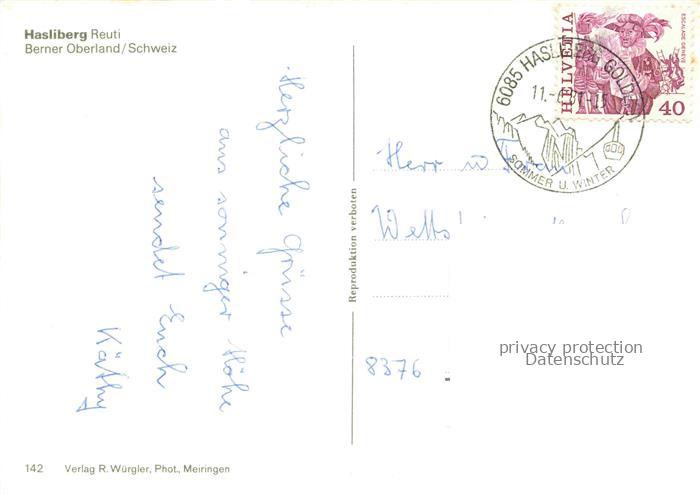 Hasliberg Reuti
Berner Oberland/Schweiz
Herzliche Grüsse
aus sonniger Höhe
sendet Euch
Käthy
Reproduktion verboten
HELVETIA
ESCALADE GENÈVE
40
6085 HASLIBERG GOLDERN
11.
SOMMER U. WINTER
Herr u
8376
privacy protection
Datenschutz
142 Verlag R. Würgler, Phot., Meiringen